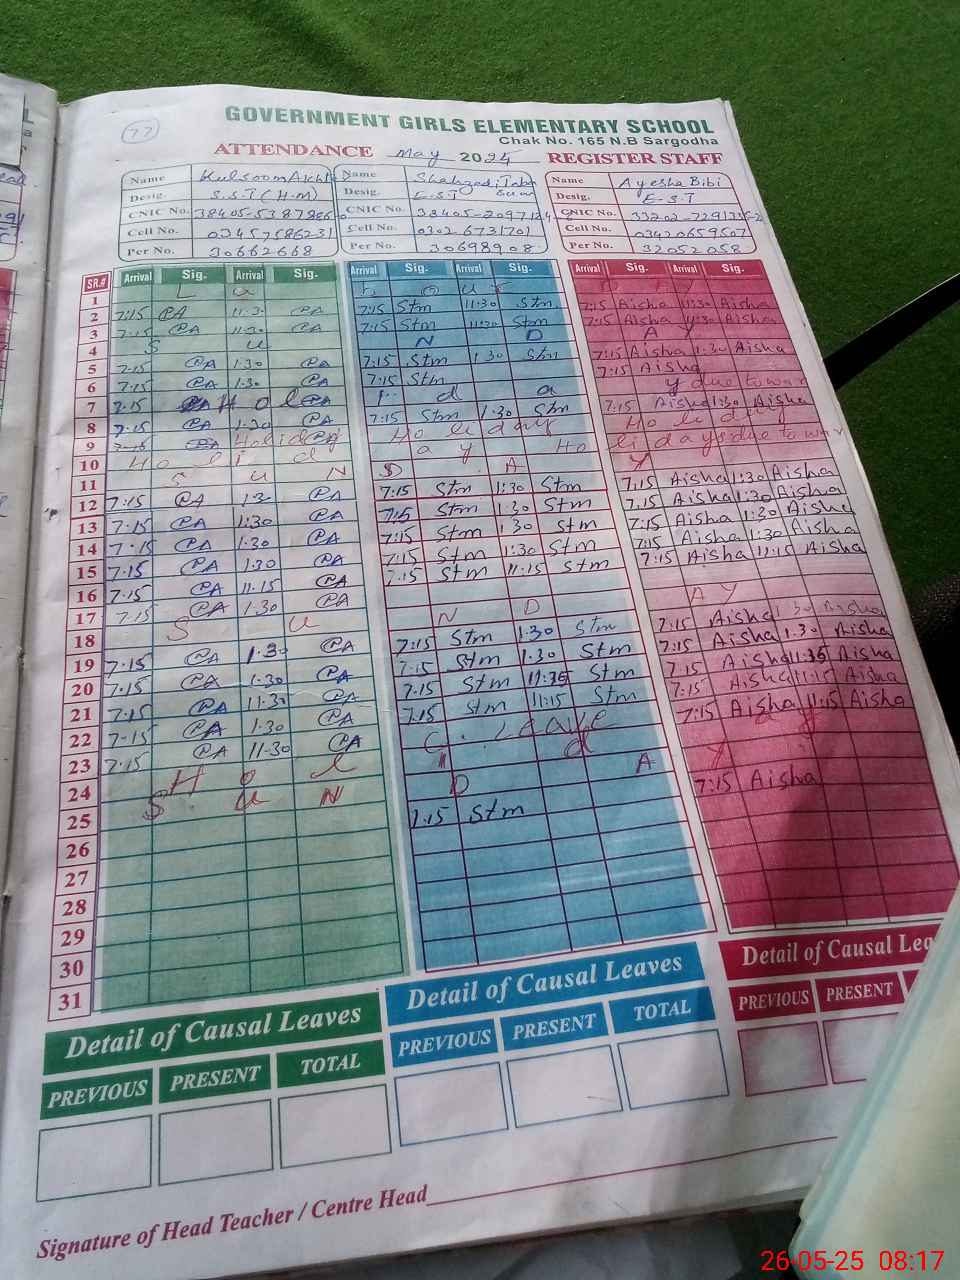 77
GOVERNMENT GIRLS ELEMENTARY SCHOOL
Chak No. 165 N.B Sargodha
ATTENDANCE May 2025 REGISTER STAFF
Name Kulsoom Akhtar Name Shahzadi Tabassum Name Ayesha Bibi
Desig. S.S.T (H.M) Desig. E.S.T Desig. E.S.T
CNIC No. CNIC No. CNIC No.
Cell No. 03457586231 Cell No. 03026731701 Cell No. 03420659507
Per No. 30662668 Per No. 30698908 Per No. 32052058
SR.# Arrival Sig. Arrival Sig. Arrival Sig. Arrival Sig. Arrival Sig. Arrival Sig.
1 L a b o u r D a y
2 7:15 CA 11:30 CA 7:15 Stm 11:30 Stm 7:15 Aisha 11:30 Aisha
3 7:15 CA 11:30 CA 7:15 Stm 11:30 Stm 7:15 Aisha 11:30 Aisha
4 S u N D A y
5 7:15 CA 1:30 CA 7:15 Stm 1:30 Stm 7:15 Aisha 1:30 Aisha
6 7:15 CA 1:30 CA 7:15 Stm 7:15 Aisha
7 7:15 H o l i d a y due to war
8 7:15 CA 1:30 CA 7:15 Stm 1:30 Stm 7:15 Aisha 1:30 Aisha
9 Holiday Holiday Holiday
10 Ho l i d a y Holidays due to war
11 S u N D A Y
12 7:15 CA 1:30 CA 7:15 Stm 1:30 Stm 7:15 Aisha 1:30 Aisha
13 7:15 CA 1:30 CA 7:15 Stm 1:30 Stm 7:15 Aisha 1:30 Aisha
14 7:15 CA 1:30 CA 7:15 Stm 1:30 Stm 7:15 Aisha 1:30 Aisha
15 7:15 CA 1:30 CA 7:15 Stm 11:30 Stm 7:15 Aisha 1:30 Aisha
16 7:15 CA 11:15 CA 7:15 Stm 11:15 Stm 7:15 Aisha 11:15 Aisha
17 7:15 CA 1:30 CA
18 S u N D A Y
19 7:15 CA 1:30 CA 7:15 Stm 1:30 Stm 7:15 Aisha 1:30 Aisha
20 7:15 CA 1:30 CA 7:15 Stm 1:30 Stm 7:15 Aisha 1:30 Aisha
21 7:15 CA 11:30 CA 7:15 Stm 11:35 Stm 7:15 Aisha 11:35 Aisha
22 7:15 CA 1:30 CA 7:15 Stm 11:15 Stm 7:15 Aisha 11:15 Aisha
23 7:15 CA 11:30 CA C. Leave 7:15 Aisha 11:15 Aisha
24 H o l i d a y
25 S u N D A Y
26 7:15 Stm 7:15 Aisha
27
28
29
30
31
Detail of Causal Leaves Detail of Causal Leaves Detail of Causal Lea
PREVIOUS PRESENT TOTAL PREVIOUS PRESENT TOTAL PREVIOUS PRESENT
Signature of Head Teacher / Centre Head
26-05-25 08:17